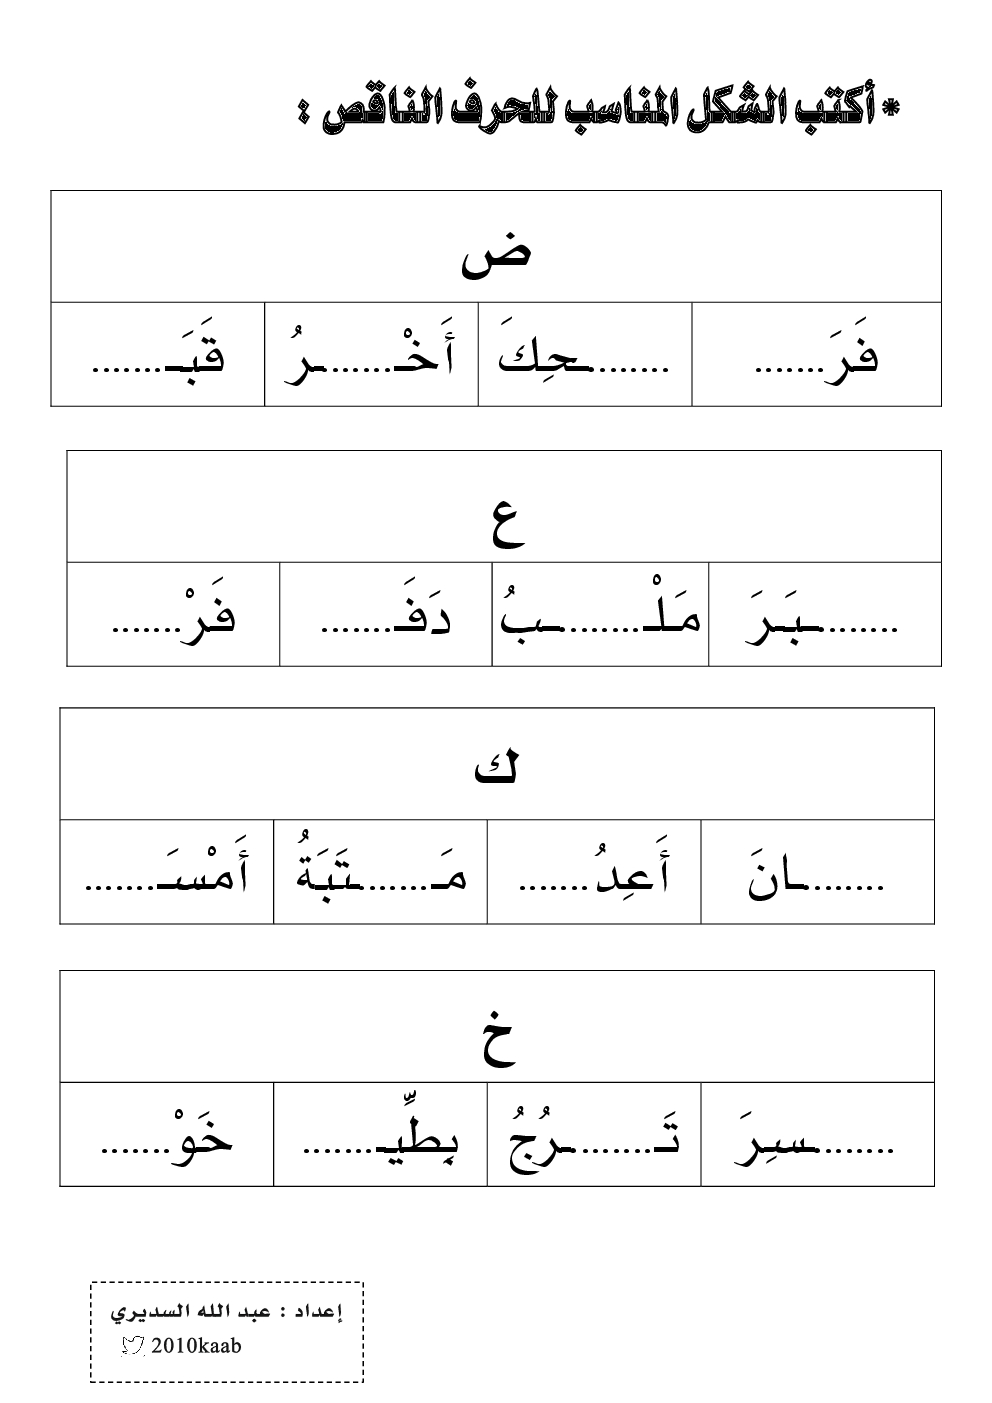 * أكتب الشكل المناسب للحرف الناقص :
ض
فَرَ....... ........ـحِكَ أَخْـ.......ـرُ قَبَـ.......
ع
........ـبَـرَ مَلْـ........ـبُ دَفَـ....... فَرْ.......
ك
........ـانَ أَعِدُ....... مَـ.......ـتَبَةُ أَمْسَـ.......
خ
........ـسِرَ تَـ........ـرُجُ بِطِّيـ....... خَوْ.......
إعداد : عبد الله السديري
2010kaab